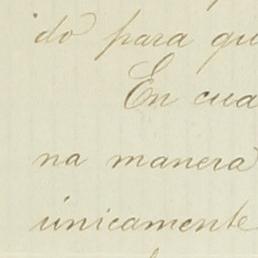 do para qu
En cua
na manera
únicamente